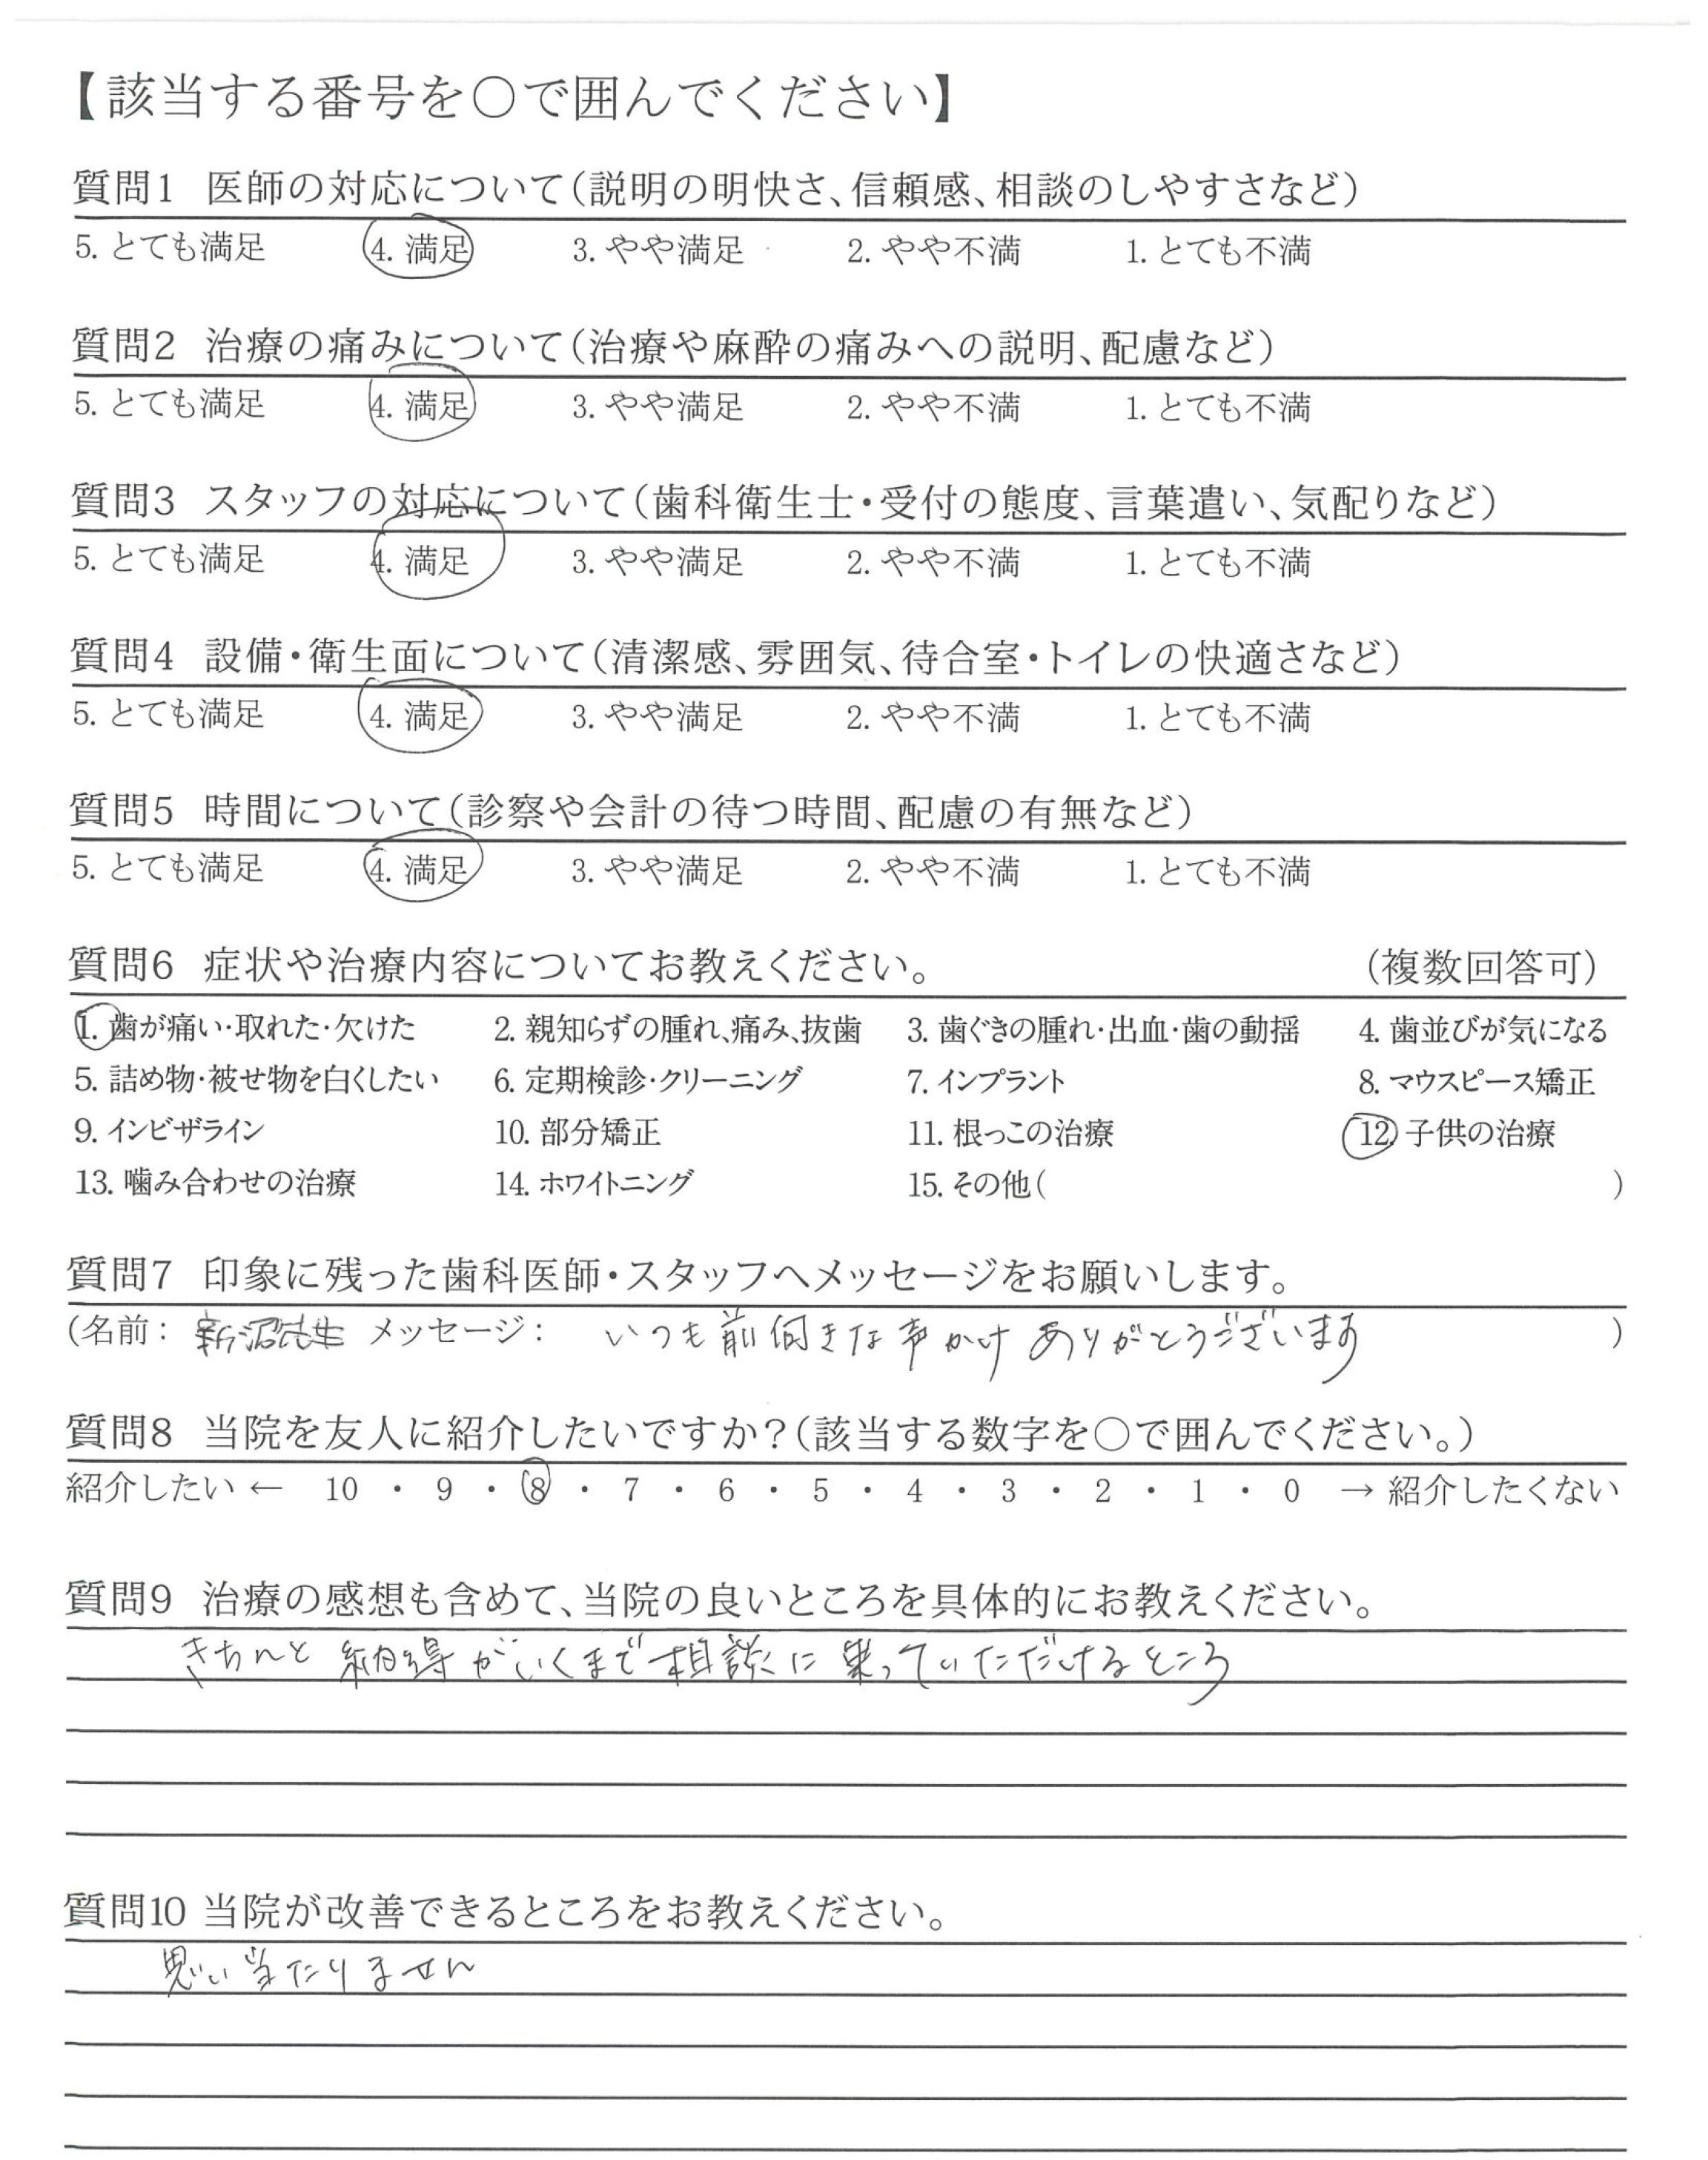 【該当する番号を〇で囲んでください】
質問1 医師の対応について（説明の明快さ、信頼感、相談のしやすさなど）
5. とても満足 4. 満足 3. やや満足 2. やや不満 1. とても不満
質問2 治療の痛みについて（治療や麻酔の痛みへの説明、配慮など）
5. とても満足 4. 満足 3. やや満足 2. やや不満 1. とても不満
質問3 スタッフの対応について（歯科衛生士・受付の態度、言葉遣い、気配りなど）
5. とても満足 4. 満足 3. やや満足 2. やや不満 1. とても不満
質問4 設備・衛生面について（清潔感、雰囲気、待合室・トイレの快適さなど）
5. とても満足 4. 満足 3. やや満足 2. やや不満 1. とても不満
質問5 時間について（診察や会計の待つ時間、配慮の有無など）
5. とても満足 4. 満足 3. やや満足 2. やや不満 1. とても不満
質問6 症状や治療内容についてお教えください。 （複数回答可）
1. 歯が痛い・取れた・欠けた 2. 親知らずの腫れ、痛み、抜歯 3. 歯ぐきの腫れ・出血・歯の動揺 4. 歯並びが気になる
5. 詰め物・被せ物を白くしたい 6. 定期検診・クリーニング 7. インプラント 8. マウスピース矯正
9. インビザライン 10. 部分矯正 11. 根っこの治療 12 子供の治療
13. 噛み合わせの治療 14. ホワイトニング 15. その他（ ）
質問7 印象に残った歯科医師・スタッフへメッセージをお願いします。
（名前： 新沼先生 メッセージ： いつも前向きな声かけありがとうございます ）
質問8 当院を友人に紹介したいですか？（該当する数字を〇で囲んでください。）
紹介したい ← 10 ・ 9 ・ 8 ・ 7 ・ 6 ・ 5 ・ 4 ・ 3 ・ 2 ・ 1 ・ 0 → 紹介したくない
質問9 治療の感想も含めて、当院の良いところを具体的にお教えください。
きちんと納得がいくまで相談に乗っていただけるところ
質問10 当院が改善できるところをお教えください。
思い当たりません